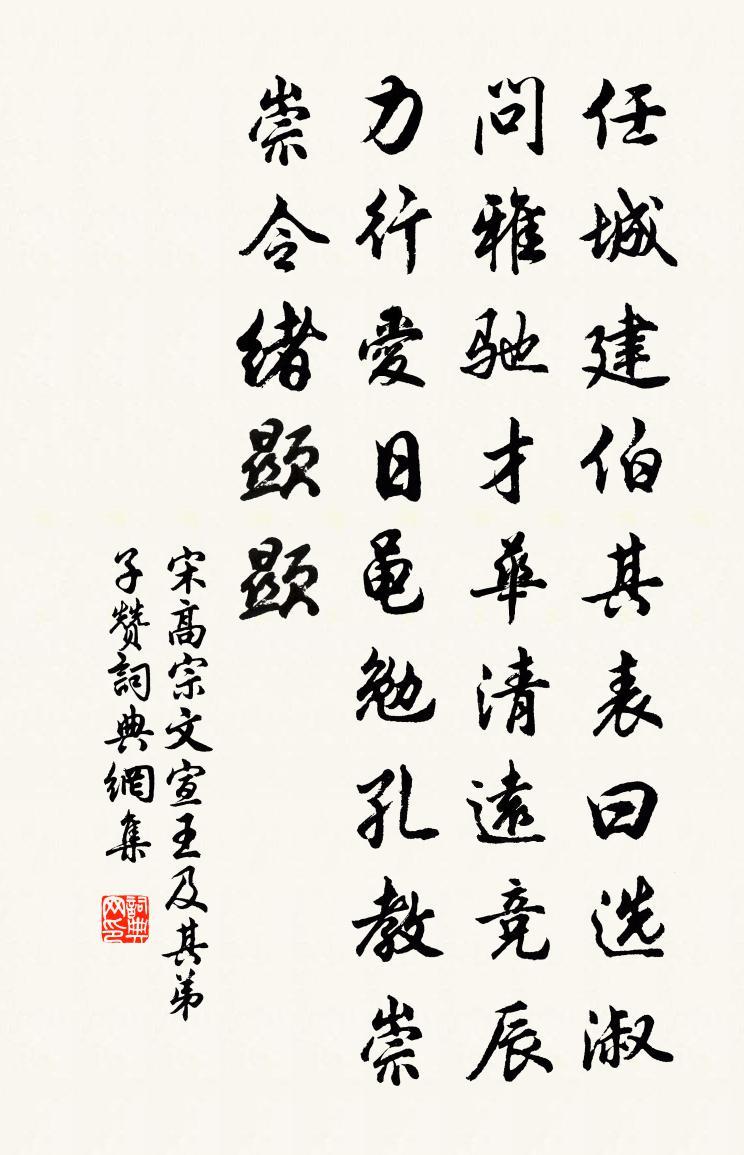 任城建伯其表曰选淑
问雅驰才華清遠竞辰
力行愛日黾勉孔教崇
崇令绪顕顕
宋高宗文宣王及其弟
子赞詞典網集
詞典网印